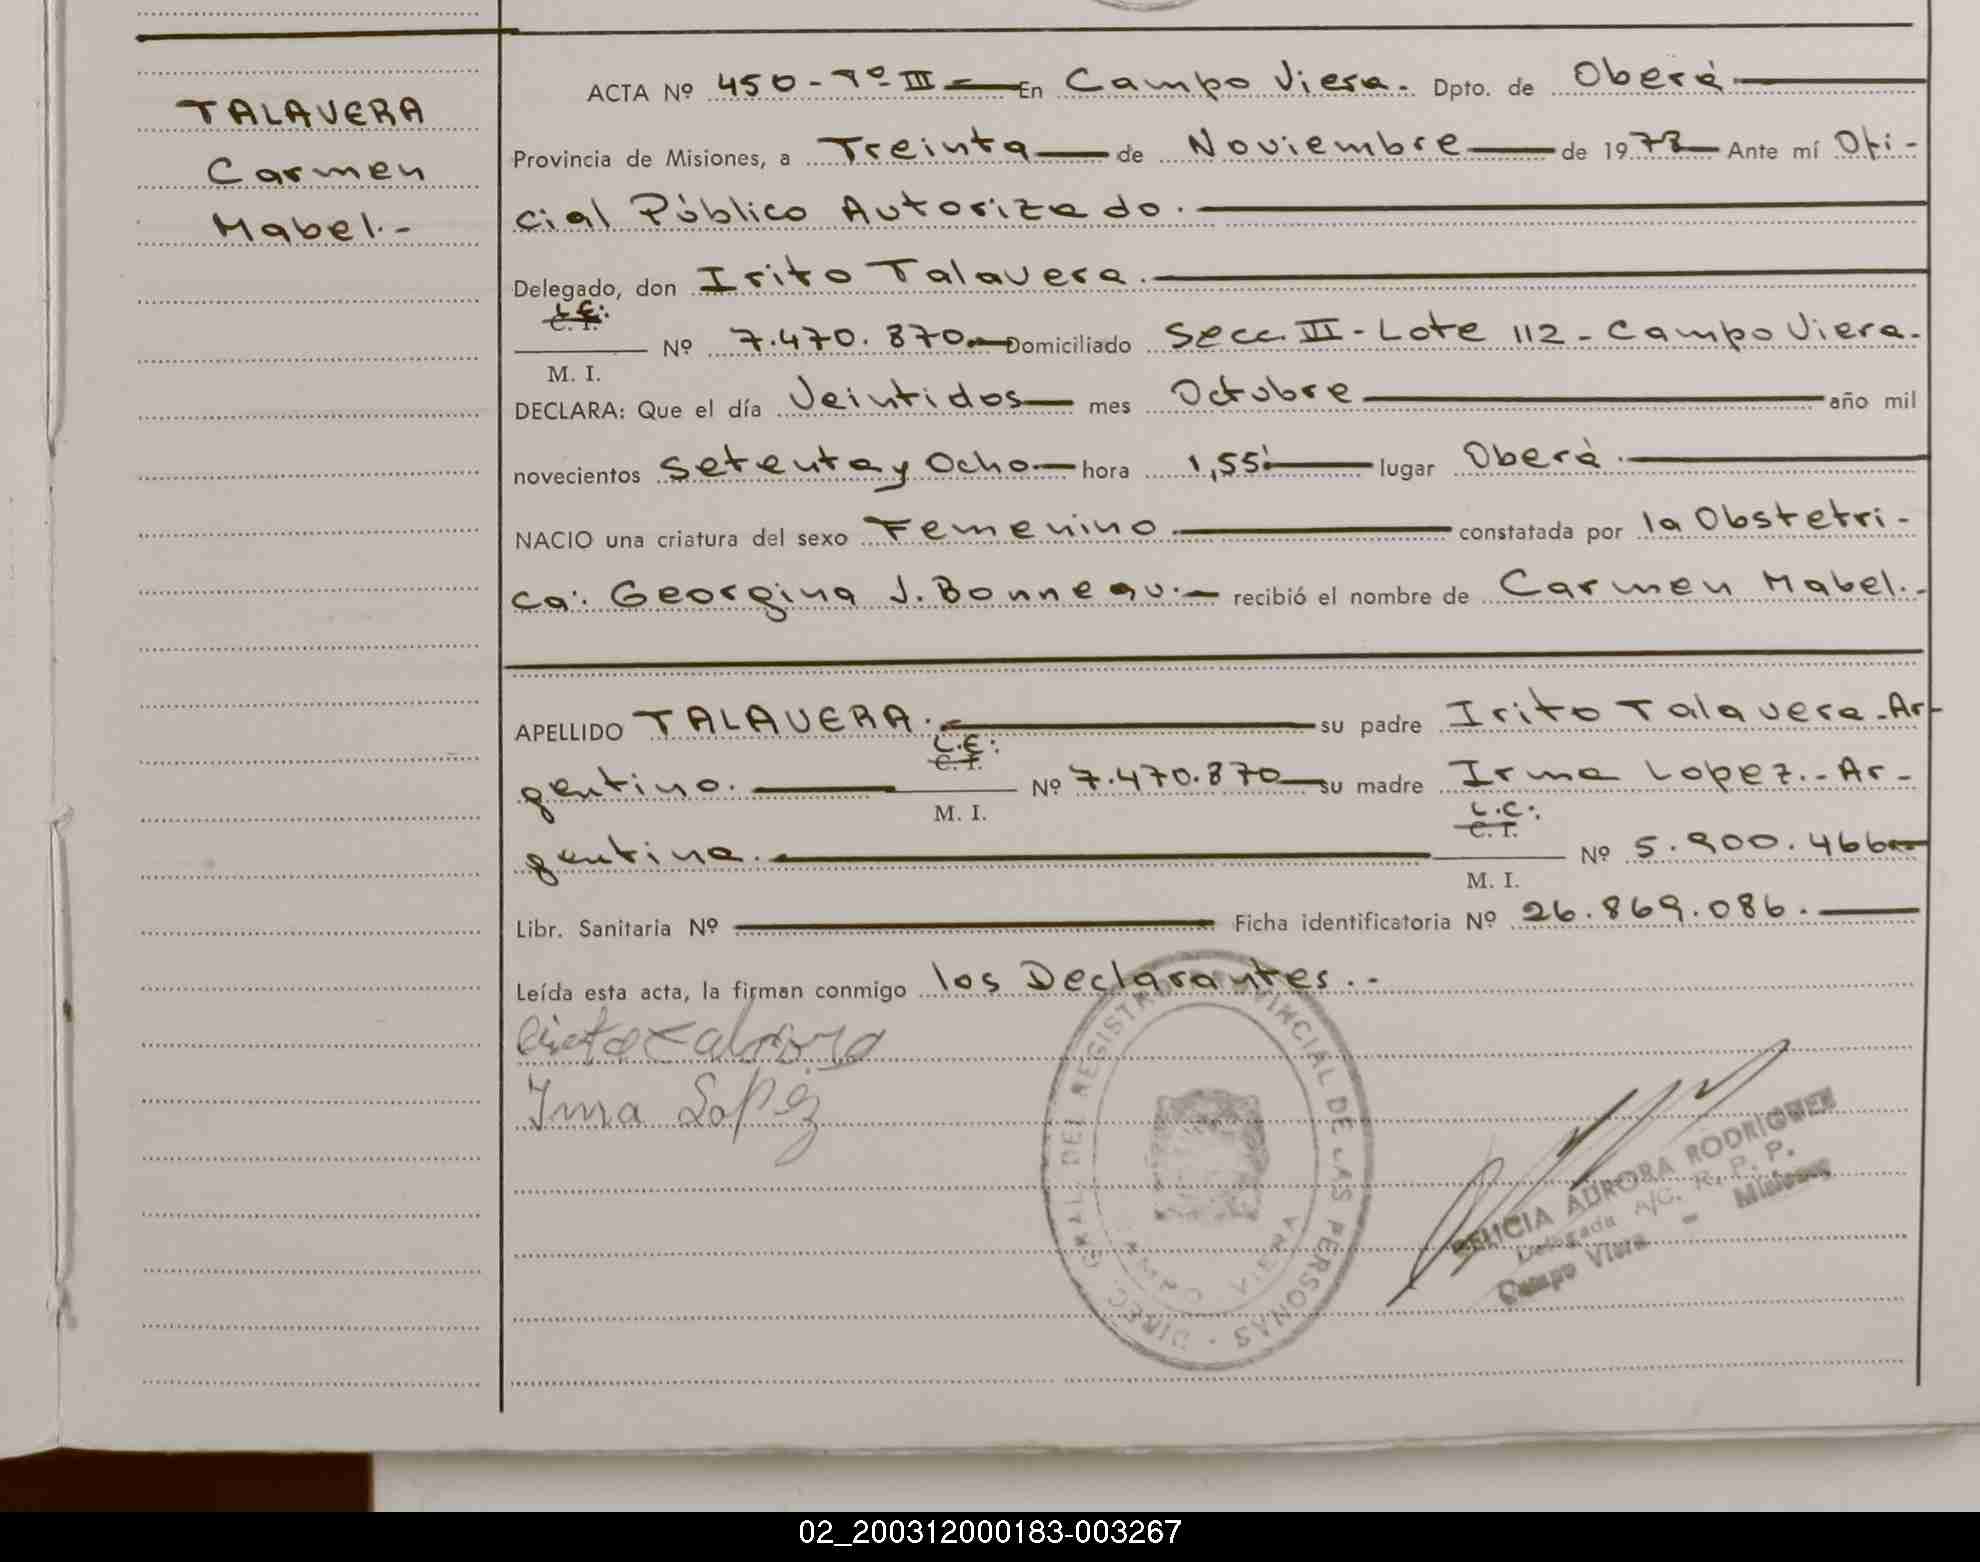 TALAVERA
Carmen
Mabel.-
ACTA Nº 450-Tº III En Campo Viera. Dpto. de Oberá
Provincia de Misiones, a Treinta de Noviembre de 1978 Ante mí Ofi-
cial Público Autorizado.
Delegado, don Irito Talavera.
L.E:
C. I.
Nº 7.470.870. Domiciliado Secc. III-Lote 112-Campo Viera.
M. I.
DECLARA: Que el día Veintidos mes Octubre año mil
novecientos Setenta y Ocho hora 1,55' lugar Oberá.
NACIO una criatura del sexo Femenino constatada por la Obstetri-
ca: Georgina J. Bonneau.- recibió el nombre de Carmen Mabel.-
APELLIDO TALAVERA. su padre Irito Talavera.-Ar-
L.E:
C. I.
gentino. Nº 7.470.870 su madre Irma Lopez.-Ar-
M. I.
L.C:
C. I.
gentina. Nº 5.900.466
M. I.
Libr. Sanitaria Nº Ficha identificatoria Nº 26.869.086.
Leída esta acta, la firman conmigo los Declarantes..-
Irma Lopez
DIREC. GRAL. DEL REGISTRO PROVINCIAL DE LAS PERSONAS
CAMPO VIERA
FELICIA AURORA RODRIGUEZ
Delegada A/C. R. P. P.
Campo Viera - Misiones
02_200312000183-003267